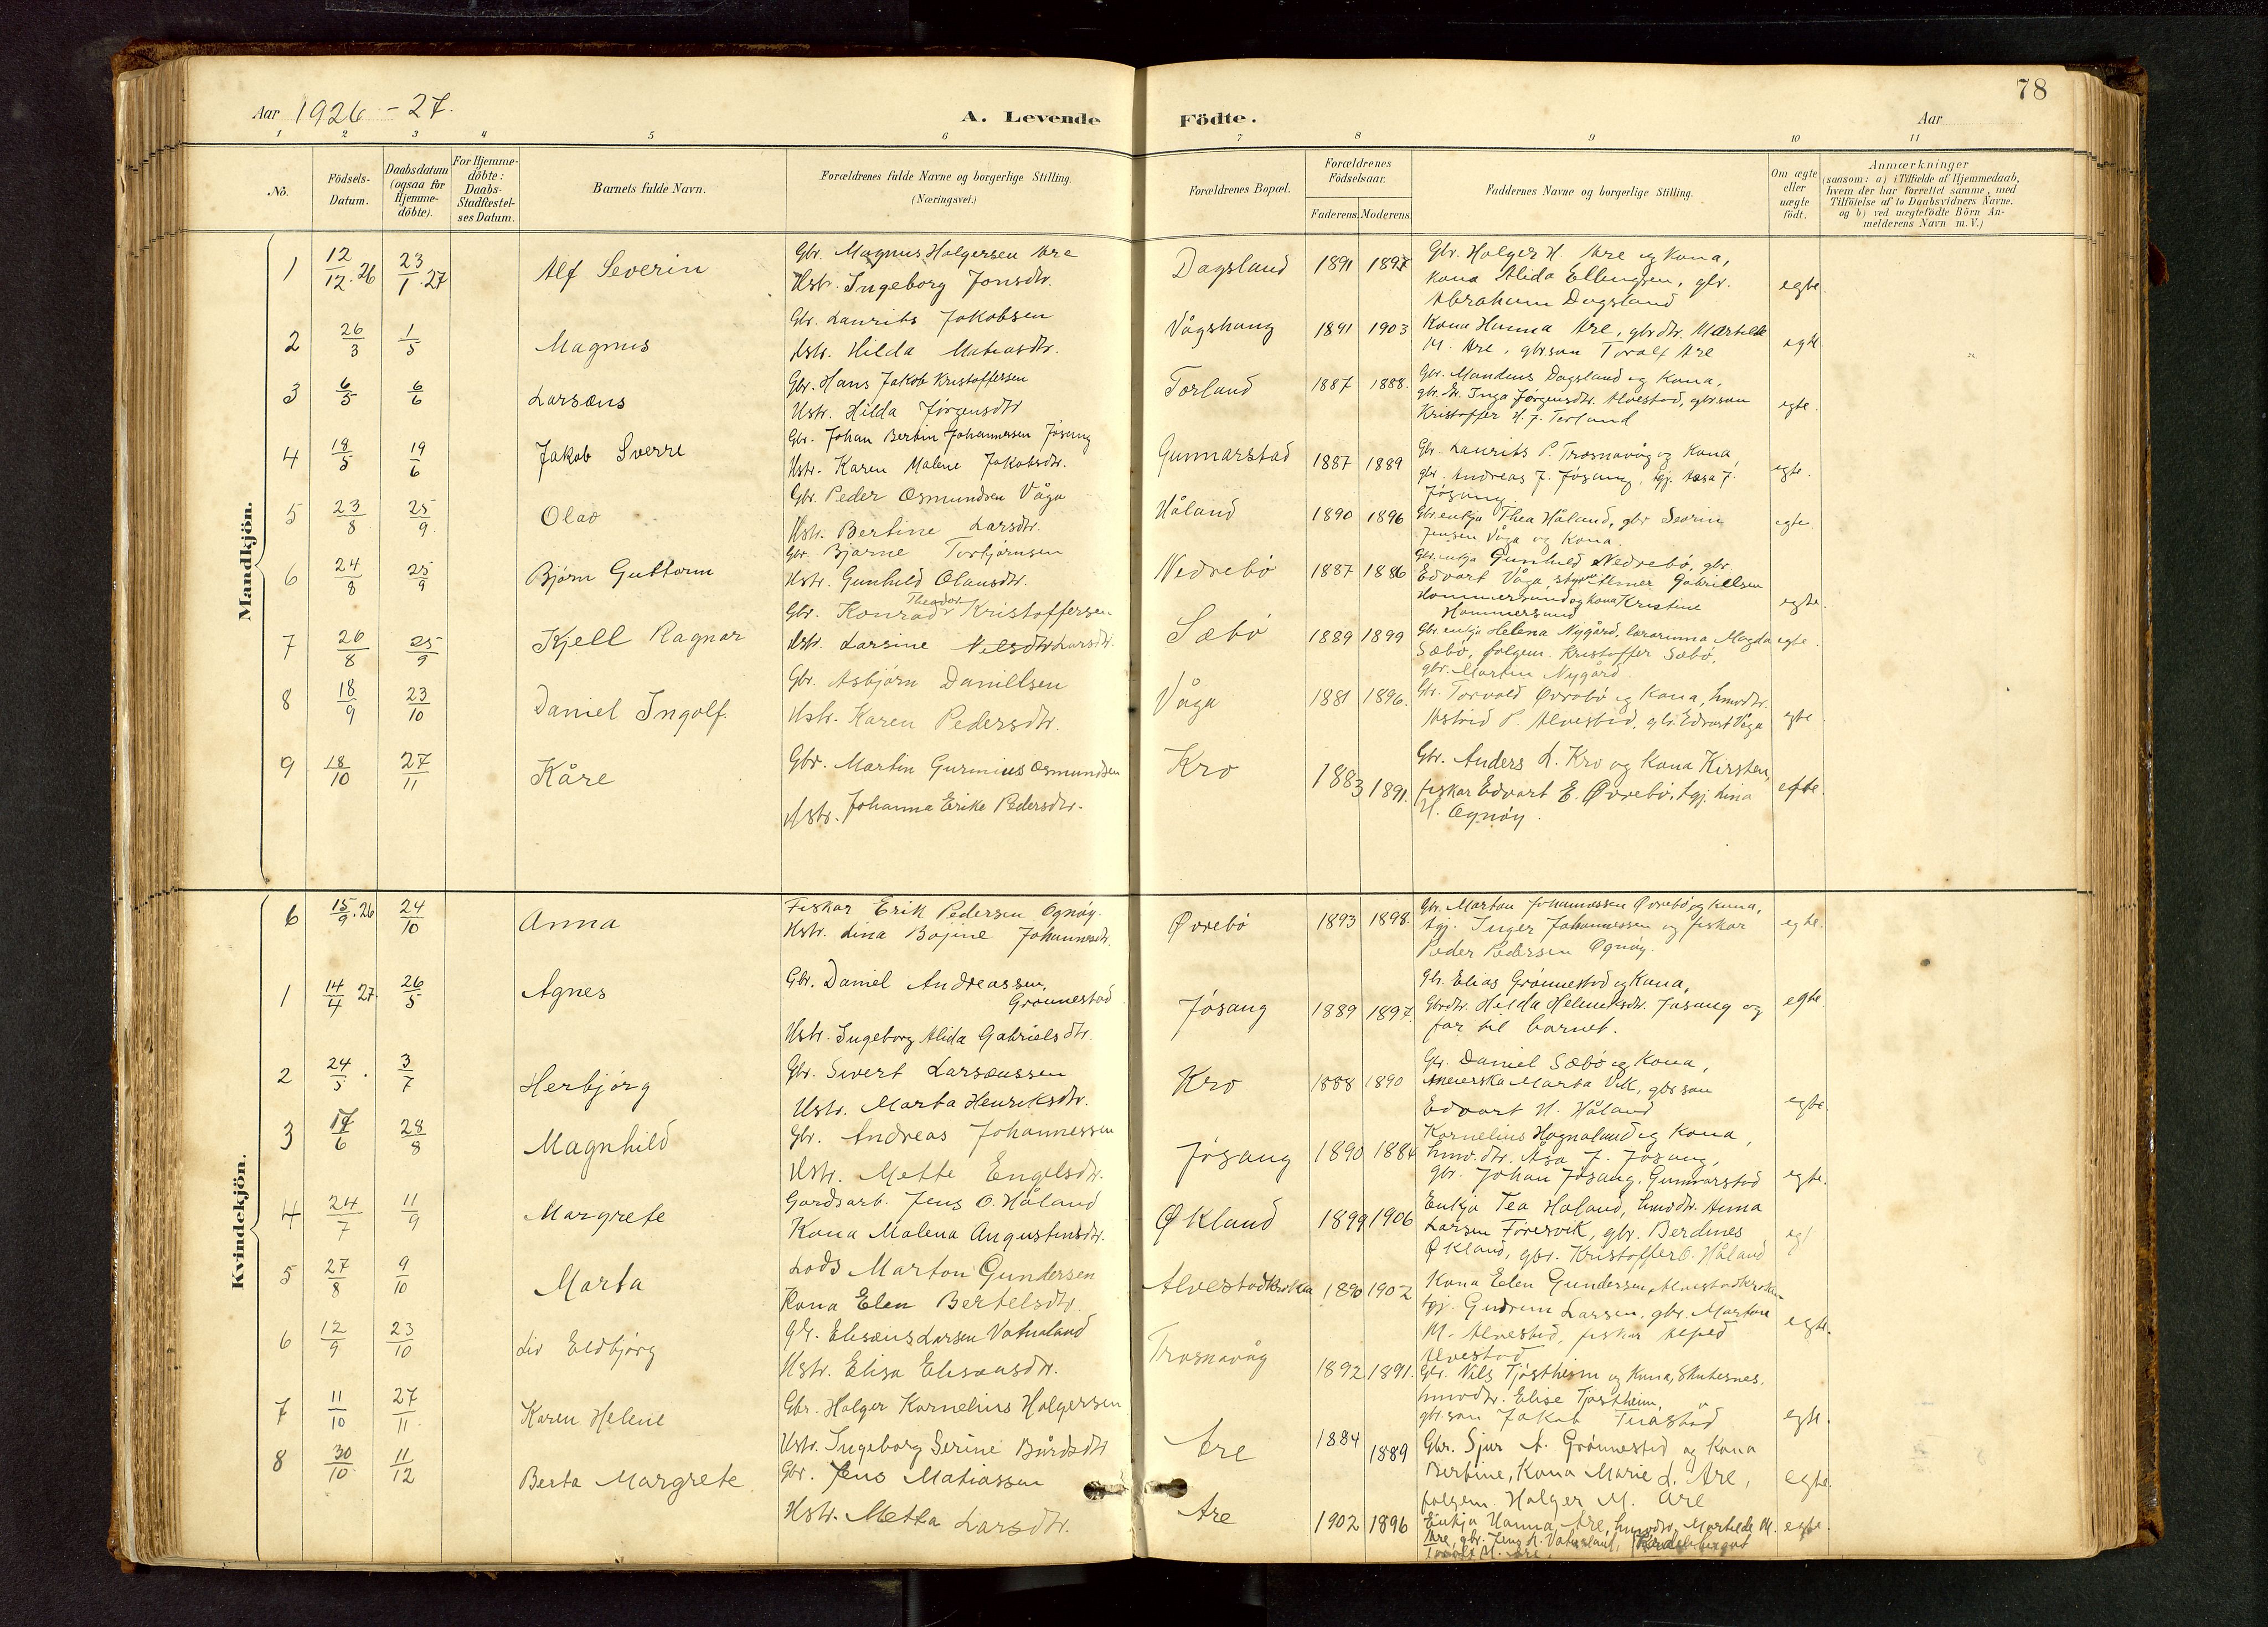 78
Aar 1926 - 27.
A. Levende Födte.
Aar
1 2 3 4 5 6 7 8 9 10 11
No.
Födsels-Datum.
Daabsdatum (ogsaa for Hjemme-döbte).
For Hjemme-döbte: Daabs-Stadfæstel-ses Datum.
Barnets fulde Navn.
Forældrenes fulde Navne og borgerlige Stilling.
(Næringsvei.)
Forældrenes Bopæl.
Forældrenes Födselsaar.
Faderens. Moderens.
Faddernes Navne og borgerlige Stilling.
Om ægte eller uægte födt.
Anmærkninger
(saasom: a) i Tilfælde af Hjemmedaab,
hvem der har forrettet samme, med
Tilföielse af to Daabsvidners Navne.
og b) ved uægtefödte Börn An-
melderens Navn m. V.)
Mandkjön.
1 12/12.26 23/1.27 Alf Severin
Gbr. Magnus Holgersen Are
Ustr. Ingeborg Jonsdtr.
Dagsland 1891 1897
Gbr. Holger H. Are og kona,
kona Alida Ellingsen, gbr.
Abraham Dagsland
egte.
2 26/3 1/5 Magnus
Gbr. Laurits Jakobsen
Ustr. Hilda Matiasdtr.
Vågshaug 1891 1903
Kona Hanna Are, gbrdtr. Marthilde
M. Are, gbrson Toralf Are
egte
3 6/5 6/6 Larsæus
Gbr. Hans Jakob Kristoffersen
Ustr. Hilda Jörgensdtr
Torland 1887 1888.
Gbr. Mandius Dagsland og kona,
gbr.dtr. Inga Jörgensdtr. Alvestad, gbrson
Kristoffer H. J. Torland
egte.
4 18/5 19/6 Jakob Sverre
Gbr. Johan Bertin Johannessen Jösang
Ustr. Karen Malene Jakobsdtr.
Gunnarstad 1887 1889
Gbr. Laurits P. Trosnavåg og kona,
gbr. Andreas J. Jösang, tgj. Aasa J.
Jösang.
egte.
5 23/8 25/9 Olav
Gbr. Peder Osmundsen Våga
Ustr. Bertine Larsdtr.
Håland 1890 1896
Gbr.enkja Thea Håland, gbr Sevrin
Jensen Våga og kona.
egte.
6 24/8 25/9 Björn Guttorm
Gbr. Bjarne Torbjörnsen
Ustr. Gunhild Olausdtr.
Nedrebö 1887 1886
Gbr.enkja Gunhild Nedrebö, gbr.
Edvart Våga, Almer Gabrielsen
Hammersund og kona Kristine
Hammersund
egte.
7 26/8 25/9 Kjell Ragnar
Theodor
Gbr. Konrad Kristoffersen
Ustr. Larsine Nilsdtr Larsdtr.
Sæbö 1889 1899
Gbr.enkja Helena Nygård, lærarinna Magda
Sæbö, folgem. Kristoffer Sæbö,
gbr. Martin Nygård.
egte.
8 18/9 23/10 Daniel Ingolf.
Gbr. Asbjörn Daniellsen
Ustr. Karen Pedersdtr.
Våga 1881 1896.
Gbr. Torvald Øvrebö og kona, hmvdtr.
Astrid P. Alvestad, gbr. Edvart Våga
egte
9 18/10 27/11 Kåre
Gbr. Martin Gurinius Osmundsen
Ustr. Johanna Erike Pedersdtr.
Kro 1883 1891.
Gbr. Anders L. Kro og kona Kirsten,
fiskar Edvart E. Øvrebö, tgj. Lina
H. Ognöy.
egte.
Kvindekjön.
6 15/9.26 24/10 Anna
Fiskar Erik Pedersen Ognöy.
Ustr. Lina Bojine Johannesdtr.
Øvrebö 1893 1898.
Gbr. Marton Johannessen Øvrebö og kona,
tgj. Inger Johannessen og fiskar
Peder Pedersen Ognöy.
egte.
1 14/4 27. 26/5 Agnes
Gbr. Daniel Andreassen,
Grönnestad
Ustr. Ingeborg Alida Gabrielsdtr.
Jösang 1889 1897.
Gbr. Elias Grönnestad og kona,
Gbrdtr. Hilda Helmiksdtr. Jösang og
far til barnet.
egte.
2 24/5. 3/7 Herbjörg
Gbr. Sivert Larsæussen
Ustr. Marta Henriksdtr.
Kro 1888 1890
Gbr. Daniel Sæbö og kona,
Marta Vik, gbrson
Edvart H. Håland
egte.
3 17/6 28/8 Magnhild
Gbr. Andreas Johannessen
Ustr. Mette Engelsdtr.
Jösang 1890 1884
Kornelius Hognaland og kona,
hmv.dtr. Åsa J. Jösang,
gbr. Johan Jösang, Gunnarstad
egte.
4 24/7 11/9 Margrete
Gardsarb. Jens O. Håland
Kona Malena Augustinsdtr.
Økland 1899 1906
Enkja Tea Håland, hmvdtr. Anna
Larsen Föresvik, gbr. Berdines
Økland, gbr. Kristoffer O. Håland
egt
5 27/8 9/10 Marta
Lods Marton Gundersen
Kona Elen Bertelsdtr.
Alvestadkroken 1890 1902
Kona Elen Gundersen, Alvestadkroken
tgj. Gudrun Larsen, gbr. Marton
M. Alvestad, fiskar Alfred
Alvestad
egte.
6 12/9 23/10 Liv Eldbjörg
Gbr. Elisæus Larsen Vatnaland
Ustr. Elisa Elisæusdtr.
Trosnavåg 1892 1891.
Gbr. Nils Tjöstheim og kona, Skutesnes,
hmvdtr. Elise Tjöstheim,
gbr.son Jakob Tuastad
egte.
7 11/10 27/11. Karen Helene
Gbr. Holger Kornelius Holgersen
Ustr. Ingeborg Serine Bårdsdtr
Are 1884 1889
Gbr. Sjur A. Grönnestad og kona
Bertine, kona Marie L. Are,
folgem. Holger M. Are
egte.
8 30/10 11/12 Berta Margrete
Gbr. Jens Matiassen
Ustr. Metta Larsdtr.
Are 1902 1896
Enkja Hanna Are, hmvdtr. Marthilde M.
Are, gbr. Jens A. Vatnaland,
Toralf M. Are.
egte.